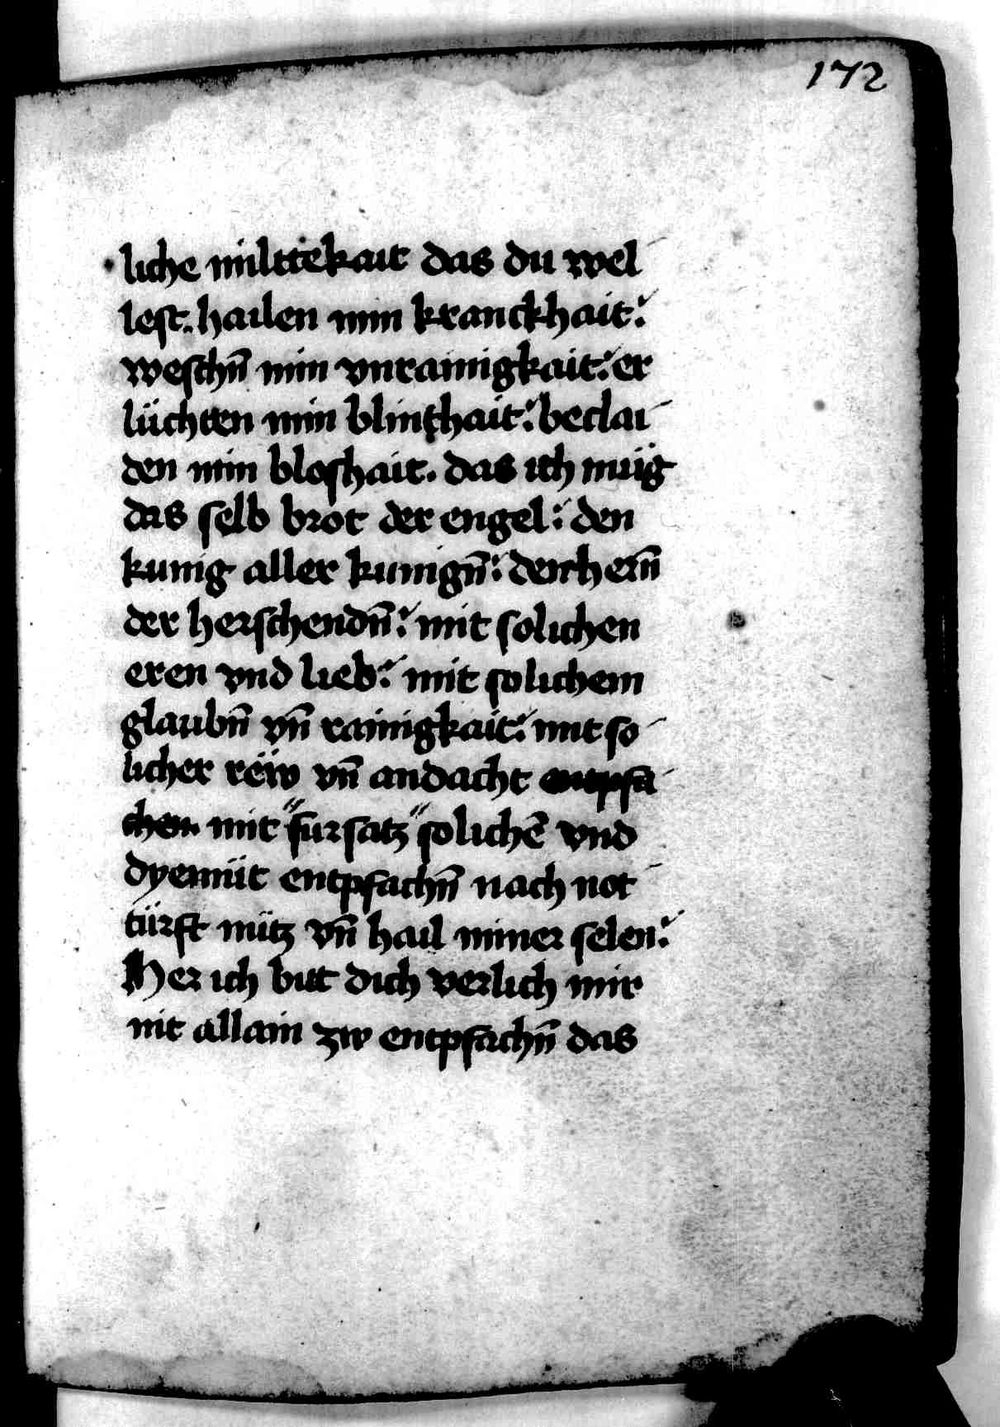 172
liche milttekait das du wel
lest. hailen min kranckhait:
weschn̄ min vnrainigkait: er
lüchten min blinthait: beclai
den min bloshait. das ich müg
das selb brot der engel: den
kunig aller kunign̄: den hern̄
der herschendn̄: mit solichen
eren vnd lieb: mit solichem
glaubn̄ vn̄ rainigkait: mit so
licher rëw vn̄ andacht entpfa
chen mit "fursatz" solichē vnd
dyemüt entpfachn̄ nach not
türft nütz vn̄ hail miner selen:
Her ich bit dich verlich mir
nit allain zw entpfachn̄ das